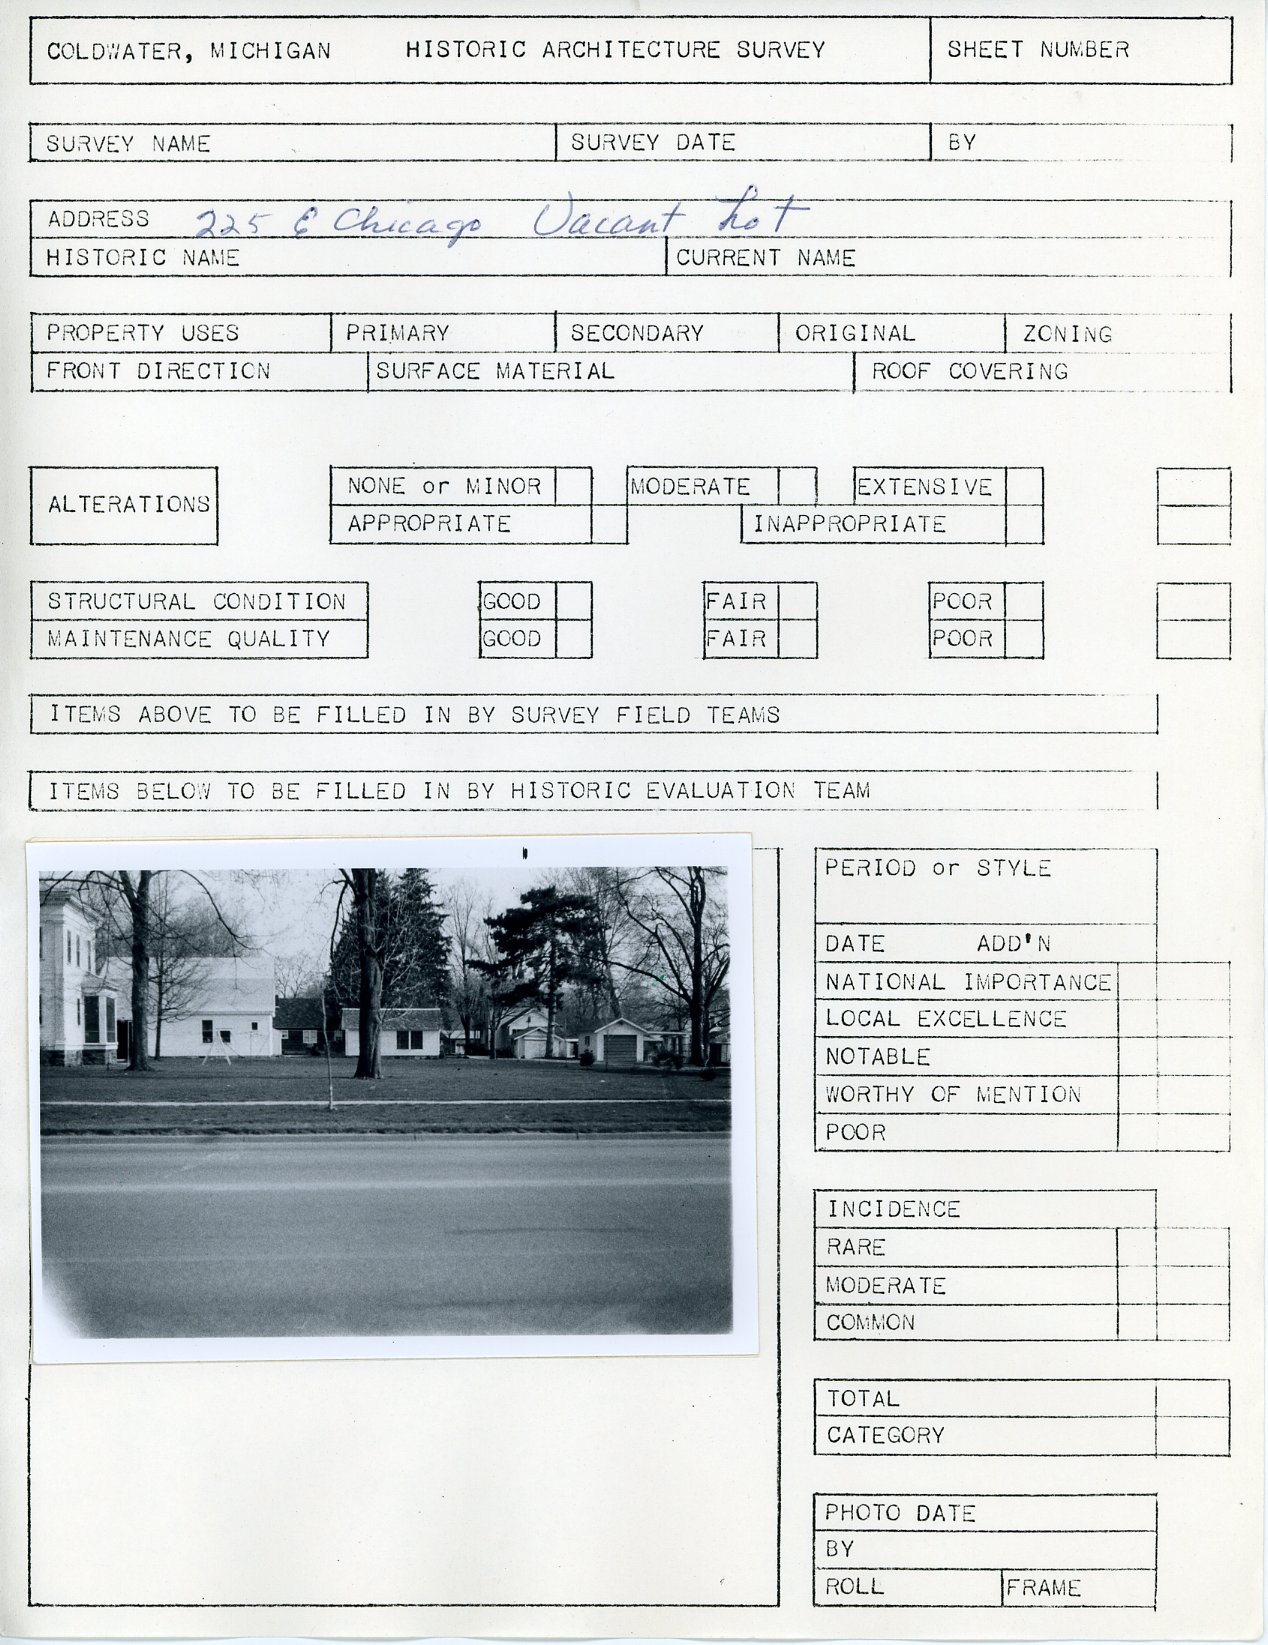 COLDWATER, MICHIGAN HISTORIC ARCHITECTURE SURVEY SHEET NUMBER
SURVEY NAME SURVEY DATE BY
ADDRESS 225 E Chicago Vacant Lot
HISTORIC NAME CURRENT NAME
PROPERTY USES PRIMARY SECONDARY ORIGINAL ZONING
FRONT DIRECTION SURFACE MATERIAL ROOF COVERING
ALTERATIONS
NONE or MINOR MODERATE EXTENSIVE
APPROPRIATE INAPPROPRIATE
STRUCTURAL CONDITION GOOD FAIR POOR
MAINTENANCE QUALITY GOOD FAIR POOR
ITEMS ABOVE TO BE FILLED IN BY SURVEY FIELD TEAMS
ITEMS BELOW TO BE FILLED IN BY HISTORIC EVALUATION TEAM
PERIOD or STYLE
DATE ADD'N
NATIONAL IMPORTANCE
LOCAL EXCELLENCE
NOTABLE
WORTHY OF MENTION
POOR
INCIDENCE
RARE
MODERATE
COMMON
TOTAL
CATEGORY
PHOTO DATE
BY
ROLL FRAME